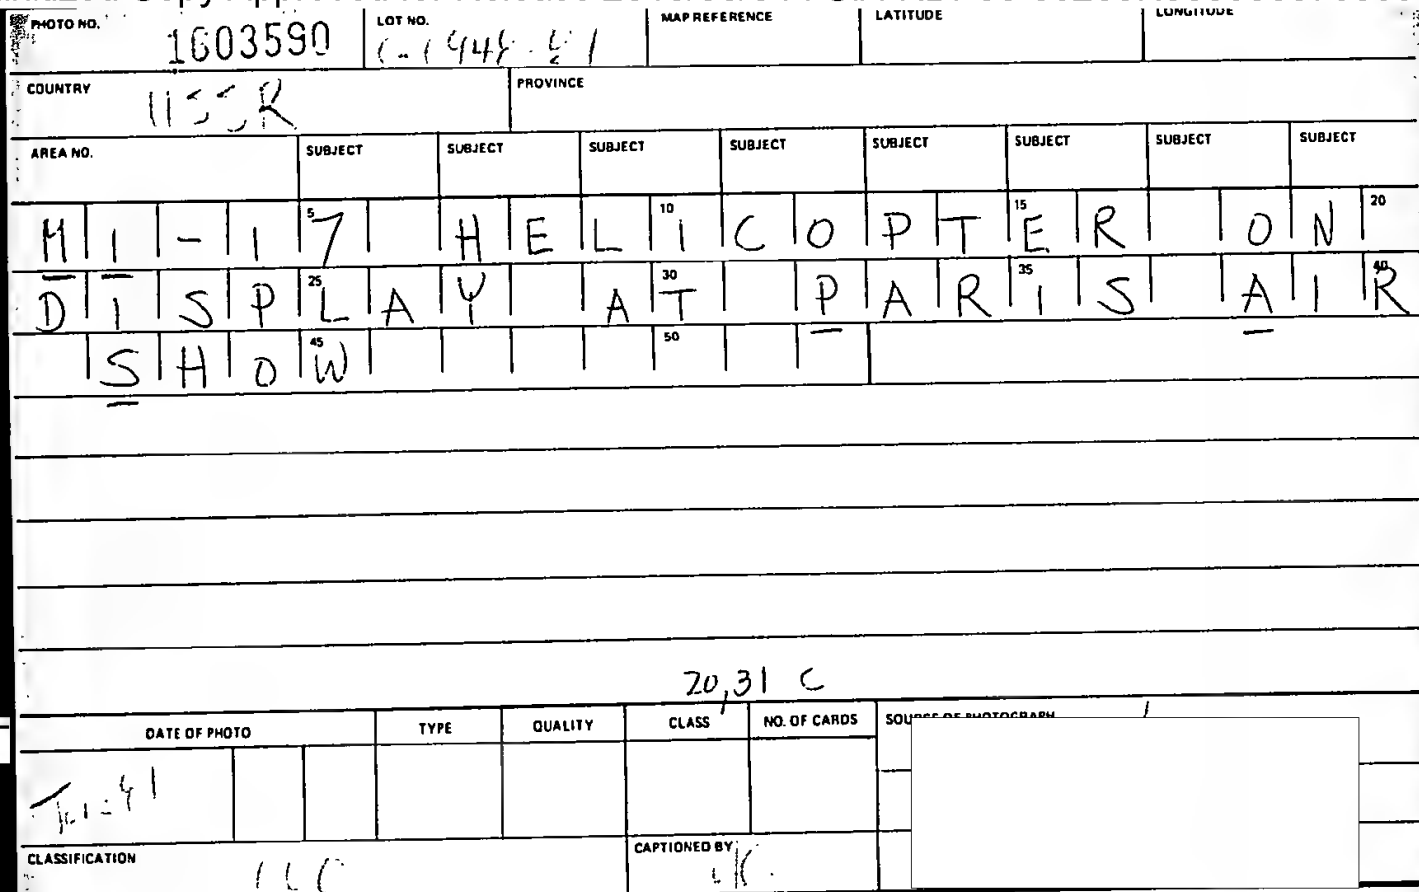 PHOTO NO. 1603590 LOT NO. MAP REFERENCE LATITUDE LONGITUDE
COUNTRY USSR PROVINCE
AREA NO. SUBJECT SUBJECT SUBJECT SUBJECT SUBJECT SUBJECT SUBJECT SUBJECT
5 10 15 20
MI-17 HELICOPTER ON
25 30 35 40
DISPLAY AT PARIS AIR
45 50
SHOW
20,31 C
DATE OF PHOTO TYPE QUALITY CLASS NO. OF CARDS SOURCE OF PHOTOGRAPH
CLASSIFICATION CAPTIONED BY